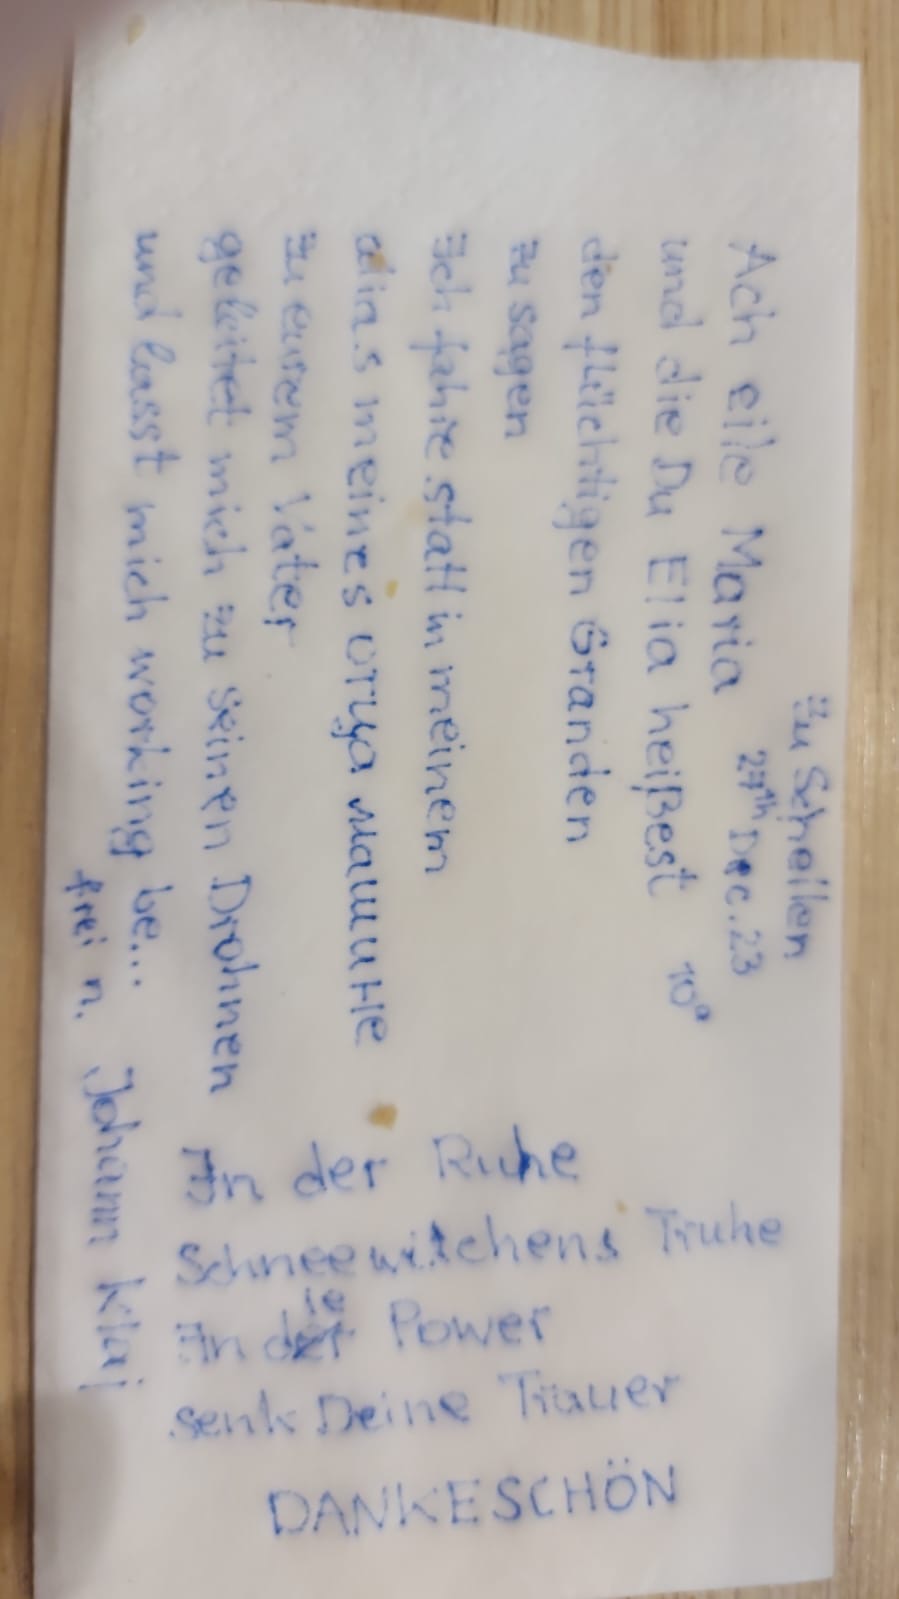 zu Scheilen
27th Dec. 23
10a
Ach eile Maria
und die Du Elia heißest
den flüchtigen Granden
zu sagen
Ich fahre statt in meinem
alias meines отца машине
zu eurem Vater
geleitet mich zu seinen Drohnen
und lasst mich working be...
frei n. Johann Klaj
In der Ruhe
Schneewitchens Truhe
In die Power
senk Deine Trauer
DANKESCHÖN